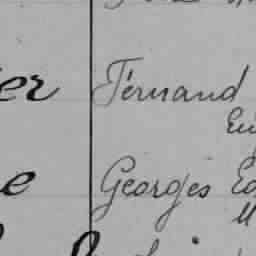 er Fernand
Eu
e Georges Ed
M